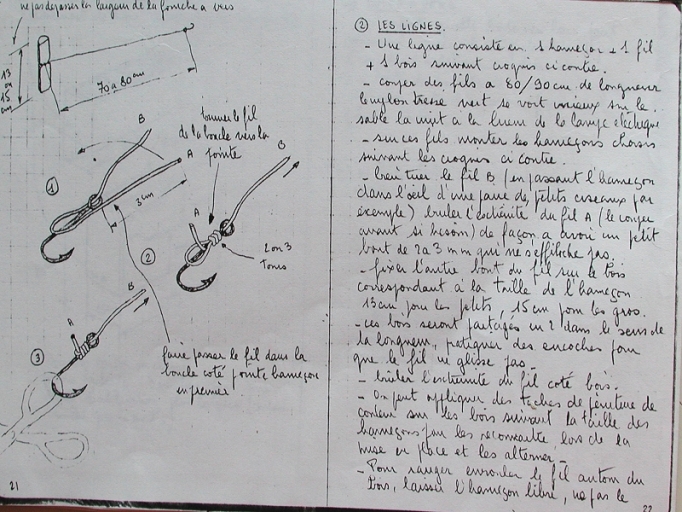 ne pas depasser la largeur de la fourche a vies
13
ou
15
cm
70 a 80 cm
tourner le fil
de la boucle vers la
pointe
B
A
B
1
3 cm
A
2
2 on 3
Tours
B
A
3
faire passer le fil dans la
boucle coté pointe hameçon
en premier
21
2 LES LIGNES.
- Une ligne consiste en 1 hameçon + 1 fil
+ 1 bois suivant croquis ci contre.
- couper des fils a 80/90 cm de longueur
le nylon tresse vert se voit mieux sur le
sable la nuit a la lueur de la lampe electrique
- sur ces fils monter les hameçons choisis
suivant les croquis ci contre.
- bien tirer le fil B (en passant l'hameçon
dans l'oeil d'une paire de petits ciseaux par
exemple) bruler l'extrémité du fil A (le couper
avant si besoin) de façon a avoir un petit
bout de 2 a 3 mm qui ne s'effiloche pas.
- fixer l'autre bout du fil sur le bois
correspondant à la taille de l'hameçon
13 cm pour les petits, 15 cm pour les gros.
- ces bois seront partagés en 2 dans le sens de
la longueur, pratiquer des encoches pour
que le fil ne glisse pas -
- bruler l'extremité du fil coté bois.
- On peut appliquer des taches de peinture de
couleur sur les bois suivant la taille des
hameçons pour les reconnaitre lors de la
mise en place et les alterner -
- Pour ranger enrouler le fil autour du
bois, laisser l'hameçon libre, ne pas le
22